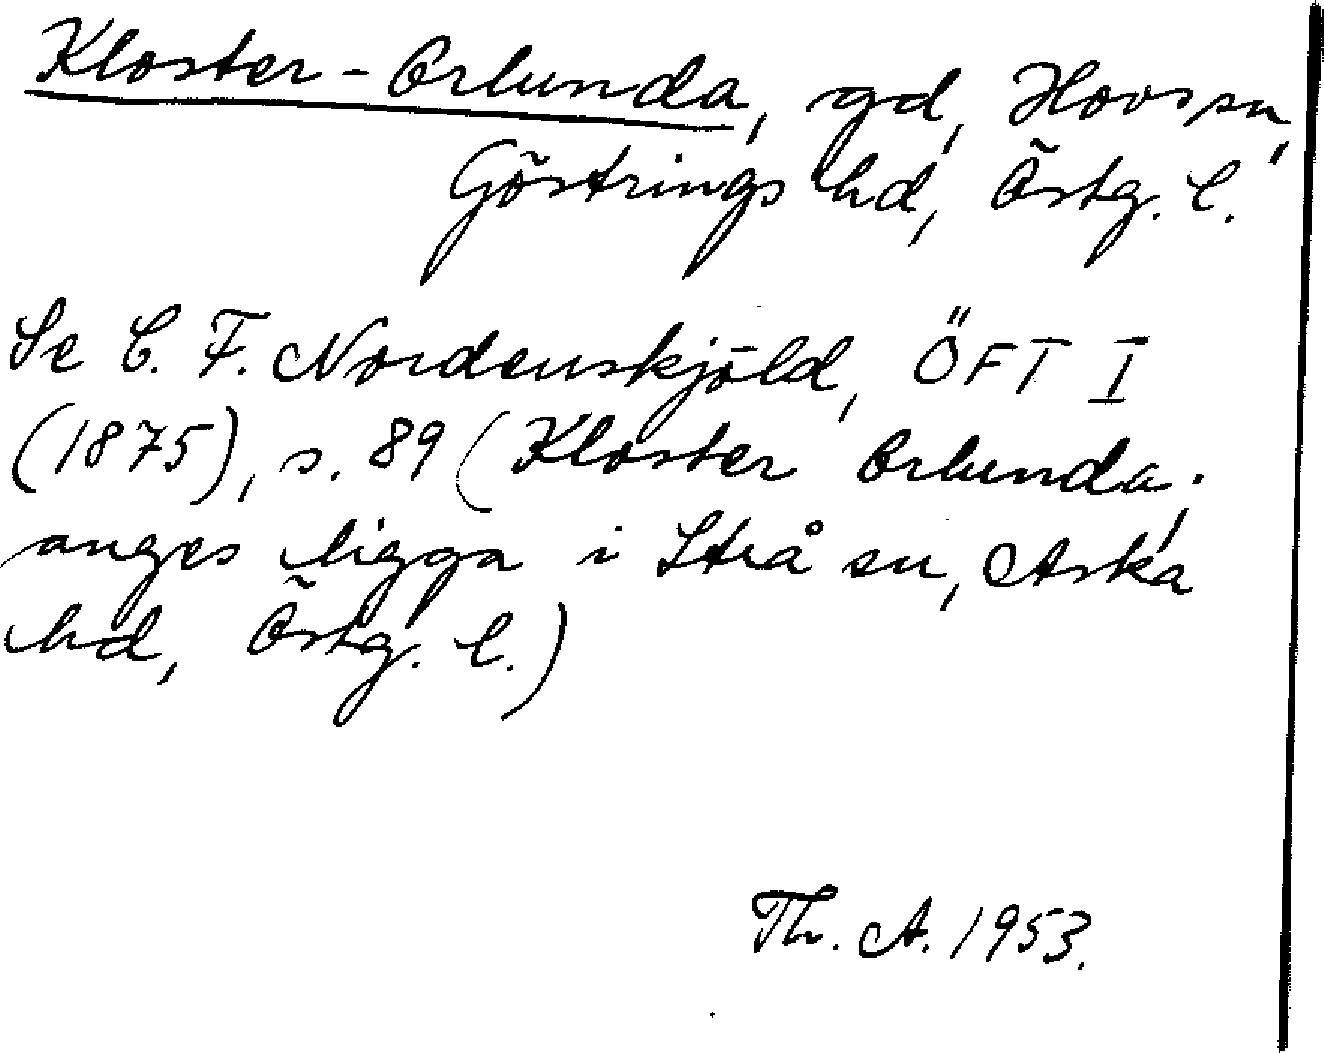 Kloster-Orlunda, gd, Hovs sn,
Göstrings hd, Östg. l.
Se C. F. Nordenskjöld, ÖFT I
(1875), s. 89 (Kloster Orlunda,
anges ligga i Strå sn, Aska
hd, Östg. l.)
Th. A. 1953.